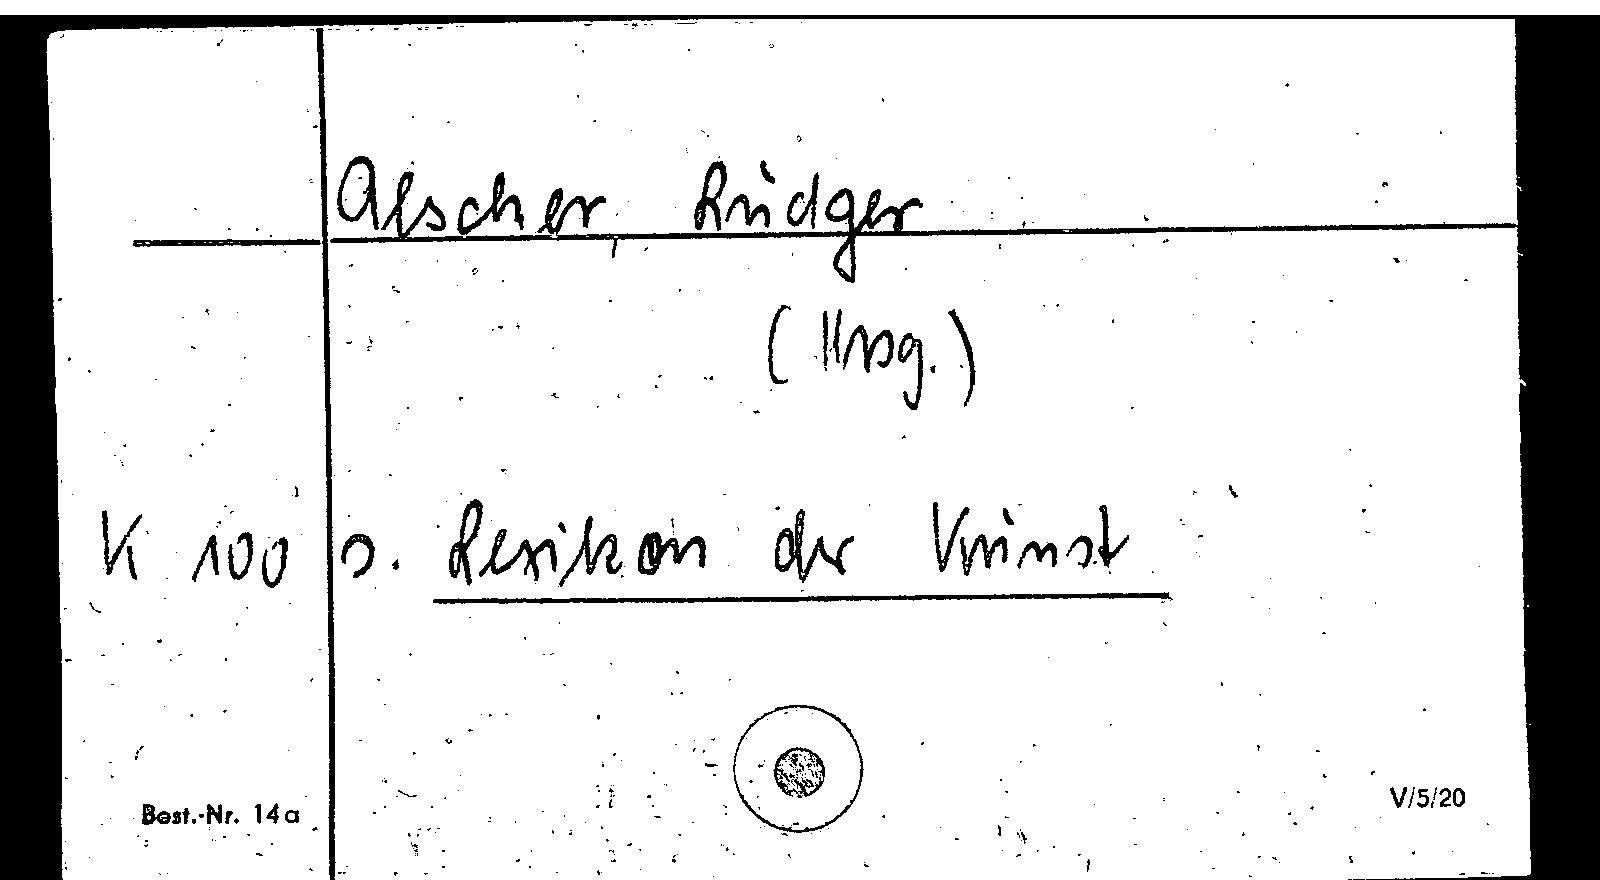 Alscher, Lüdger
(Hrsg.)
K 100 s. Lexikon der Kunst
Best.-Nr. 14a
V/5/20